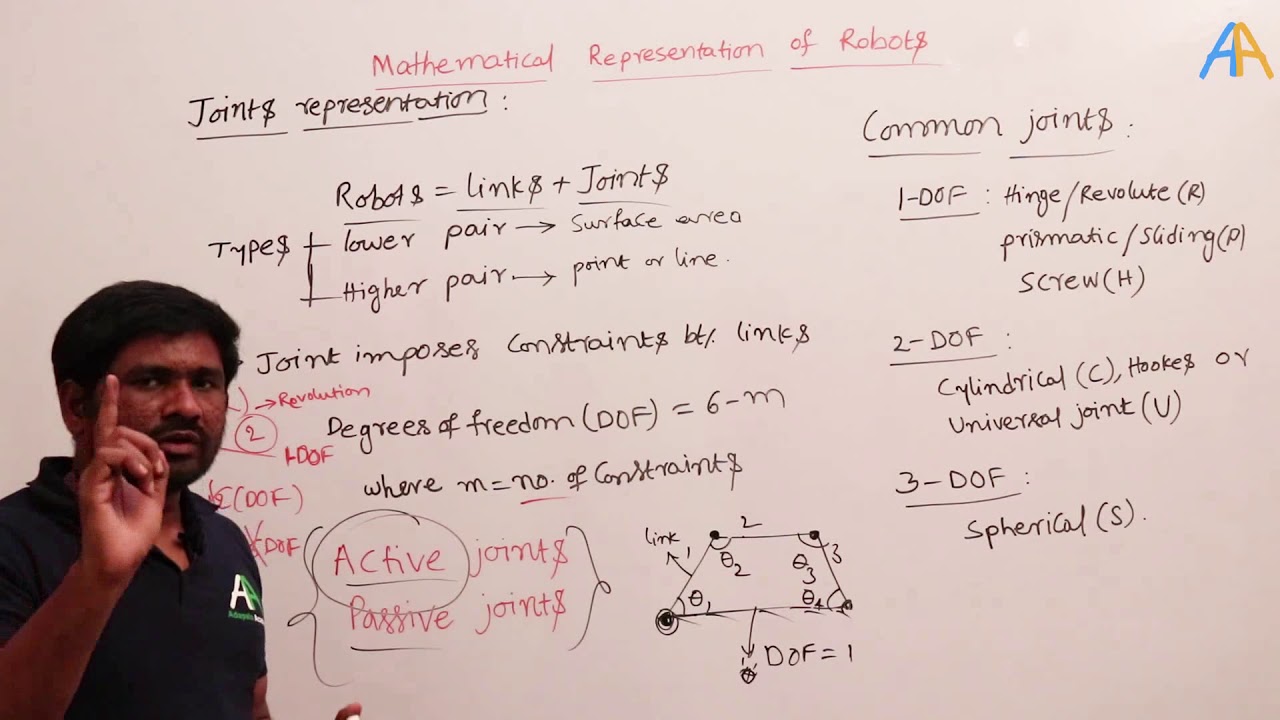 AA
Mathematical Representation of Robots
Joints representation :
Robots = links + Joints
Types
lower pair → surface area
Higher pair → point or line.
Joint imposes Constraints bt/. links
→ Revolution
2
1-DOF
Degrees of freedom (DOF) = 6-m
(DOF)
DOF
where m = no. of Constraints
Active joints
Passive joints
link
1
2
3
θ1
θ2
θ3
θ4
DOF = 1
Common joints :
1-DOF : Hinge/Revolute (R)
prismatic/sliding(P)
Screw(H)
2-DOF :
Cylindrical (C), Hookes or
Universal joint (U)
3-DOF :
Spherical (S).
AA